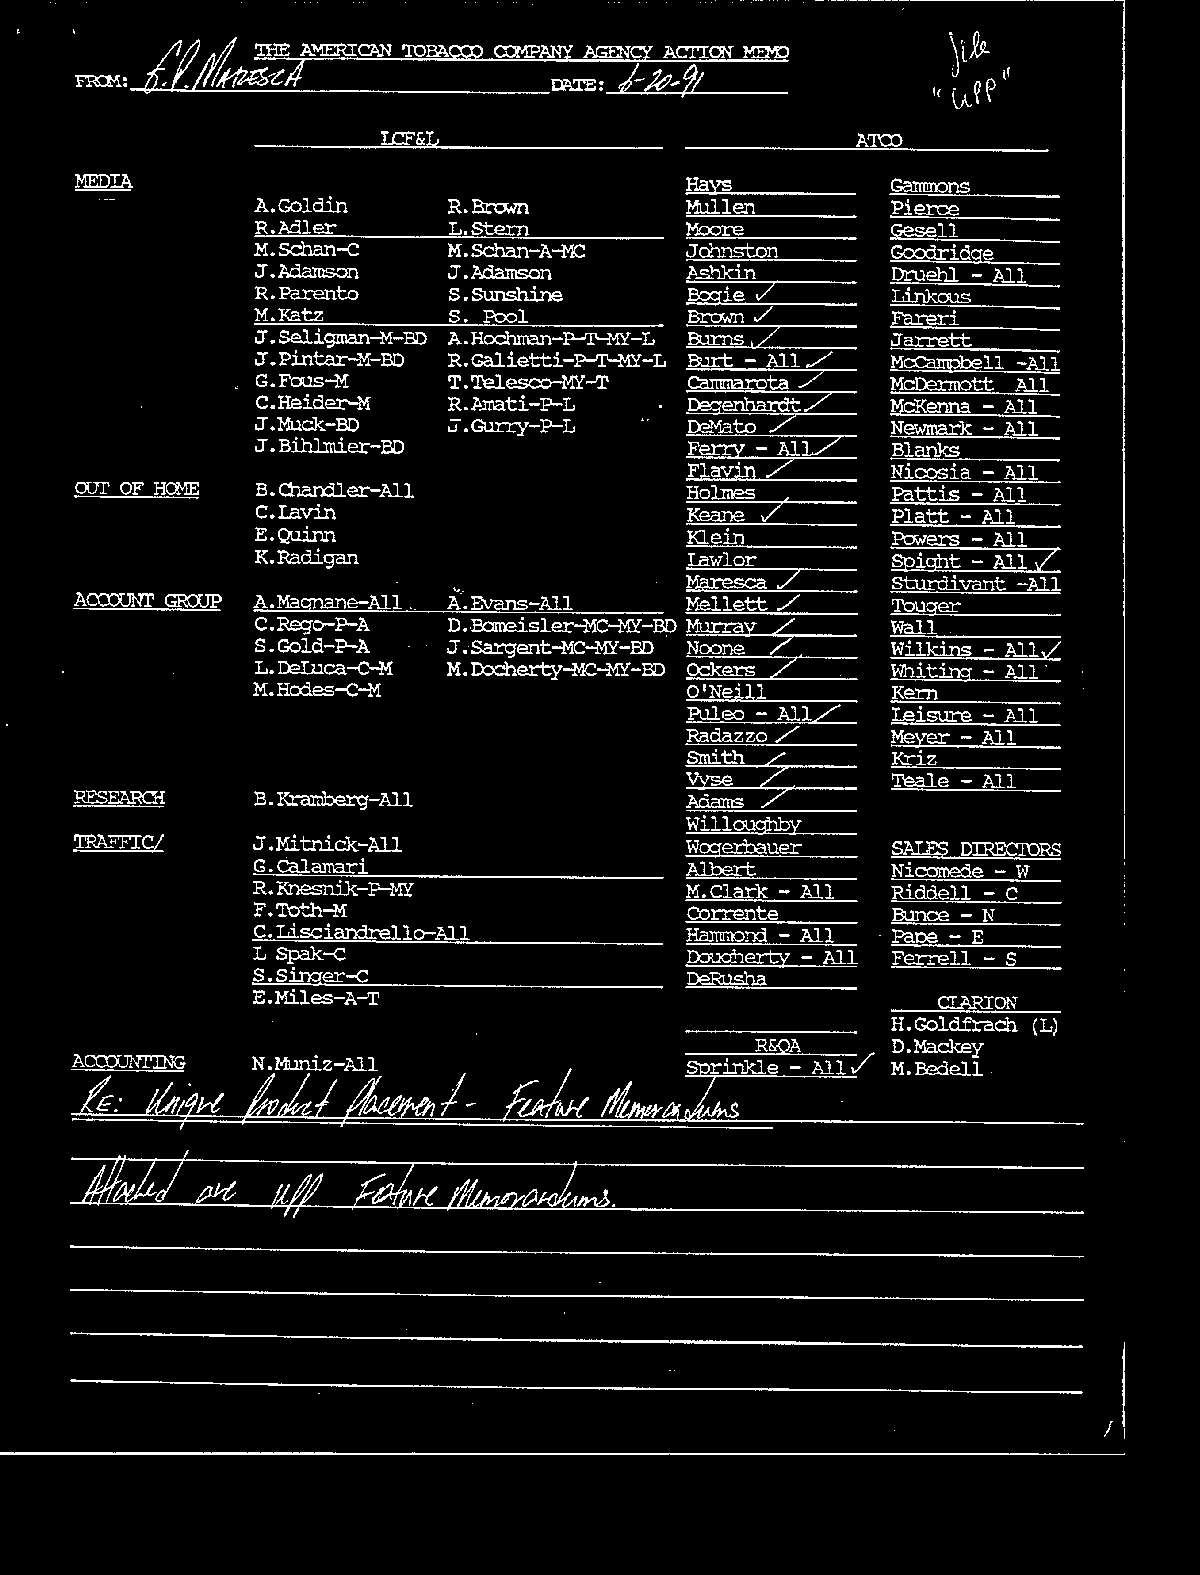 THE AMERICAN TOBACCO COMPANY AGENCY ACTION MEMO
File
"UPP"
FROM: E.P. MARESCA DATE: 6-20-91
LCF&L ATCO
MEDIA
A.Goldin R.Brown
R.Adler L.Stern
M.Schan-C M.Schan-A-MC
J.Adamson J.Adamson
R.Parento S.Sunshine
M.Katz S. Pool
J.Seligman-M-BD A.Hochman-P-T-MY-L
J.Pintar-M-BD R.Galietti-P-T-MY-L
G.Fous-M T.Telesco-MY-T
C.Heider-M R.Amati-P-L
J.Muck-BD J.Gurry-P-L
J.Bihlmier-BD
OUT OF HOME B.Chandler-All
C.Lavin
E.Quinn
K.Radigan
ACCOUNT GROUP A.Magnane-All A.Evans-All
C.Rego-P-A D.Bomeisler-MC-MY-BD
S.Gold-P-A J.Sargent-MC-MY-BD
L.DeLuca-C-M M.Docherty-MC-MY-BD
M.Hodes-C-M
RESEARCH B.Kramberg-All
TRAFFIC/ J.Mitnick-All
G.Calamari
R.Knesnik-P-MY
F.Toth-M
C.Lisciandrello-All
L Spak-C
S.Singer-C
E.Miles-A-T
ACCOUNTING N.Muniz-All
Hays
Mullen
Moore
Johnston
Ashkin
Bogie ✓
Brown ✓
Burns ✓
Burt - All ✓
Cammarota ✓
Degenhardt ✓
DeMato ✓
Ferry - All ✓
Flavin ✓
Holmes
Keane ✓
Klein
Lawlor
Maresca ✓
Mellett ✓
Murray ✓
Noone ✓
Ockers ✓
O'Neill
Puleo - All ✓
Radazzo ✓
Smith ✓
Vyse ✓
Adams ✓
Willoughby
Wogerbauer
Albert
M.Clark - All
Corrente
Hammond - All
Dougherty - All
DeRusha
R&QA
Sprinkle - All ✓
Gammons
Pierce
Gesell
Goodridge
Druehl - All
Linkous
Fareri
Jarrett
McCampbell -All
McDermott All
McKenna - All
Newmark - All
Blanks
Nicosia - All
Pattis - All
Platt - All
Powers - All
Spight - All ✓
Sturdivant -All
Touger
Wall
Wilkins - All ✓
Whiting - All
Kern
Leisure - All
Meyer - All
Kriz
Teale - All
SALES DIRECTORS
Nicomede - W
Riddell - C
Bunce - N
Pape - E
Ferrell - S
CLARION
H.Goldfrach (L)
D.Mackey
M.Bedell
RE: Unique Product Placement - Feature Memorandums
Attached are UPP Feature Memorandums.